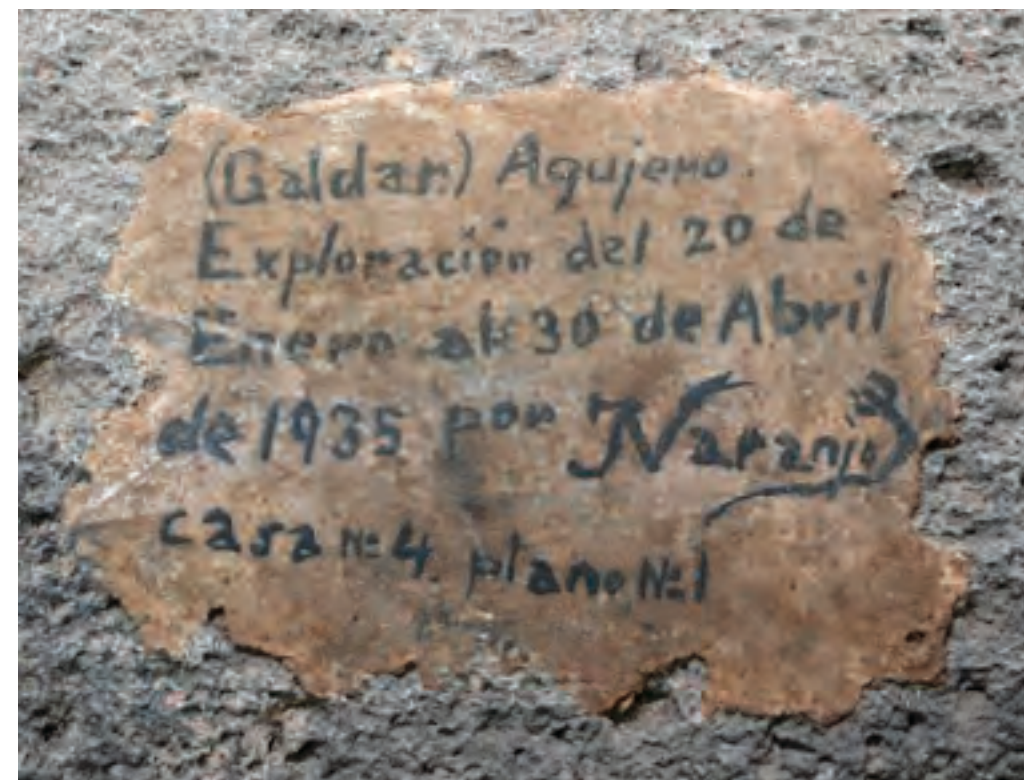 (Galdar) Agujero.
Exploración del 20 de
Enero al 30 de Abril
de 1935 por Naranjo
casa Nº 4. plano Nº 1